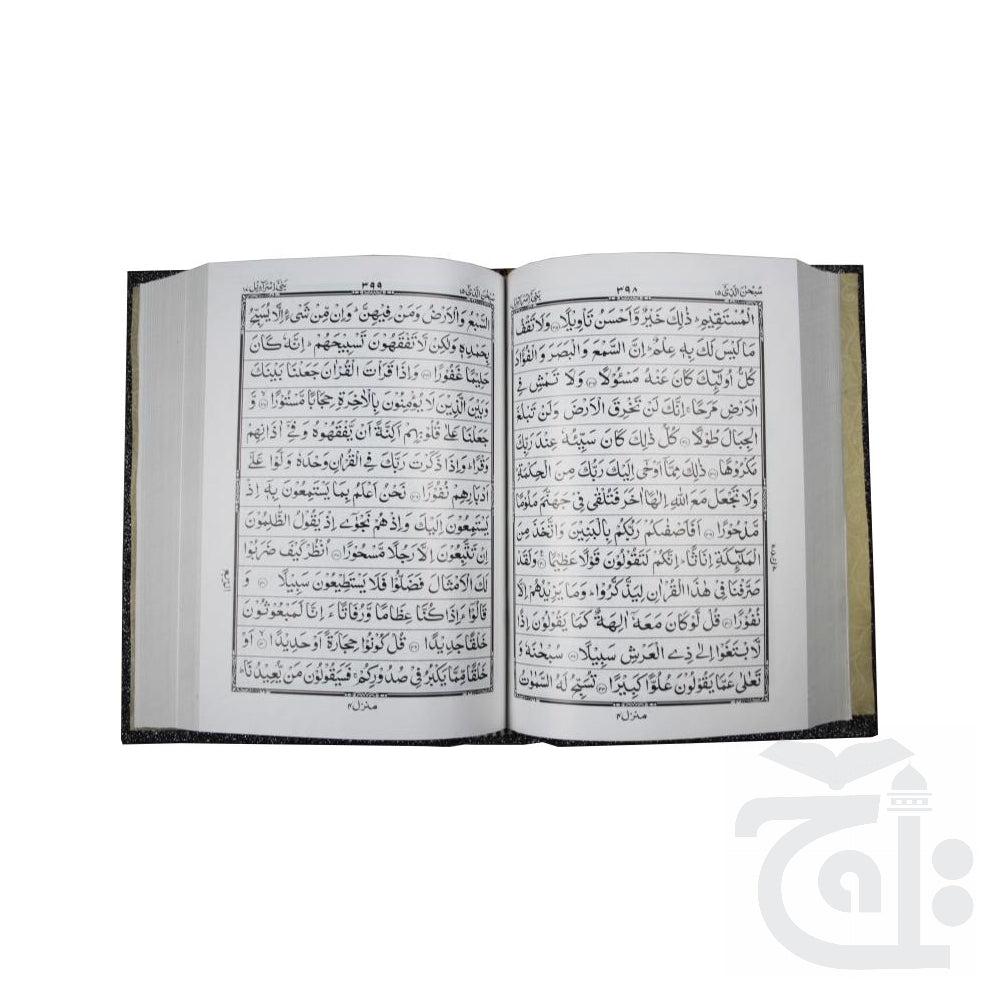 سُبْحٰنَ الَّذِیْٓ ۱۵
۳۹۸
بَنِیْٓ اِسْرَآءِیْل ۱۷
الْمُسْتَقِيْمِ ؕ ذٰلِكَ خَيْرٌ وَّاَحْسَنُ تَاْوِيْلًا ﴿۳۵﴾ وَلَا تَقْفُ
مَا لَيْسَ لَكَ بِهٖ عِلْمٌ ؕ اِنَّ السَّمْعَ وَ الْبَصَرَ وَ الْفُؤَادَ
كُلُّ اُولٰٓئِكَ كَانَ عَنْهُ مَسْـُٔوْلًا ﴿۳۶﴾ وَ لَا تَمْشِ فِی
الْاَرْضِ مَرَحًا ۚ اِنَّكَ لَنْ تَخْرِقَ الْاَرْضَ وَلَنْ تَبْلُغَ
الْجِبَالَ طُوْلًا ﴿۳۷﴾ كُلُّ ذٰلِكَ كَانَ سَيِّئُهٗ عِنْدَ رَبِّكَ
مَكْرُوْهًا ﴿۳۸﴾ ذٰلِكَ مِمَّاۤ اَوْحٰۤی اِلَيْكَ رَبُّكَ مِنَ الْحِكْمَةِ ؕ
وَلَا تَجْعَلْ مَعَ اللّٰهِ اِلٰهًا اٰخَرَ فَتُلْقٰی فِیْ جَهَنَّمَ مَلُوْمًا
مَّدْحُوْرًا ﴿۳۹﴾ اَفَاَصْفٰىكُمْ رَبُّكُمْ بِالْبَنِيْنَ وَاتَّخَذَ مِنَ
الْمَلٰٓئِكَةِ اِنَاثًا ؕ اِنَّكُمْ لَتَقُوْلُوْنَ قَوْلًا عَظِيْمًا ﴿۴۰﴾ وَلَقَدْ
صَرَّفْنَا فِیْ هٰذَا الْقُرْاٰنِ لِيَذَّكَّرُوْا ؕ وَمَا يَزِيْدُهُمْ اِلَّا
نُفُوْرًا ﴿۴۱﴾ قُلْ لَّوْ كَانَ مَعَهٗۤ اٰلِهَةٌ كَمَا يَقُوْلُوْنَ اِذًا
لَّابْتَغَوْا اِلٰی ذِی الْعَرْشِ سَبِيْلًا ﴿۴۲﴾ سُبْحٰنَهٗ وَ
تَعٰلٰی عَمَّا يَقُوْلُوْنَ عُلُوًّا كَبِيْرًا ﴿۴۳﴾ تُسَبِّحُ لَهُ السَّمٰوٰتُ
منزل ۴
سُبْحٰنَ الَّذِیْٓ ۱۵
۳۹۹
بَنِیْٓ اِسْرَآءِیْل ۱۷
السَّبْعُ وَالْاَرْضُ وَمَنْ فِيْهِنَّ ؕ وَاِنْ مِّنْ شَیْءٍ اِلَّا يُسَبِّحُ
بِحَمْدِهٖ وَلٰكِنْ لَّا تَفْقَهُوْنَ تَسْبِيْحَهُمْ ؕ اِنَّهٗ كَانَ
حَلِيْمًا غَفُوْرًا ﴿۴۴﴾ وَاِذَا قَرَاْتَ الْقُرْاٰنَ جَعَلْنَا بَيْنَكَ
وَبَيْنَ الَّذِيْنَ لَا يُؤْمِنُوْنَ بِالْاٰخِرَةِ حِجَابًا مَّسْتُوْرًا ﴿۴۵﴾ وَّ
جَعَلْنَا عَلٰی قُلُوْبِهِمْ اَكِنَّةً اَنْ يَّفْقَهُوْهُ وَفِیْۤ اٰذَانِهِمْ
وَقْرًا ؕ وَاِذَا ذَكَرْتَ رَبَّكَ فِی الْقُرْاٰنِ وَحْدَهٗ وَلَّوْا عَلٰۤی
اَدْبَارِهِمْ نُفُوْرًا ﴿۴۶﴾ نَحْنُ اَعْلَمُ بِمَا يَسْتَمِعُوْنَ بِهٖۤ اِذْ
يَسْتَمِعُوْنَ اِلَيْكَ وَاِذْ هُمْ نَجْوٰۤی اِذْ يَقُوْلُ الظّٰلِمُوْنَ
اِنْ تَتَّبِعُوْنَ اِلَّا رَجُلًا مَّسْحُوْرًا ﴿۴۷﴾ اُنْظُرْ كَيْفَ ضَرَبُوْا
لَكَ الْاَمْثَالَ فَضَلُّوْا فَلَا يَسْتَطِيْعُوْنَ سَبِيْلًا ﴿۴۸﴾ وَ
قَالُوْۤا ءَاِذَا كُنَّا عِظَامًا وَّرُفَاتًا ءَاِنَّا لَمَبْعُوْثُوْنَ
خَلْقًا جَدِيْدًا ﴿۴۹﴾ قُلْ كُوْنُوْا حِجَارَةً اَوْ حَدِيْدًا ﴿۵۰﴾ اَوْ
خَلْقًا مِّمَّا يَكْبُرُ فِیْ صُدُوْرِكُمْ ۚ فَسَيَقُوْلُوْنَ مَنْ يُّعِيْدُنَا ؕ
منزل ۴